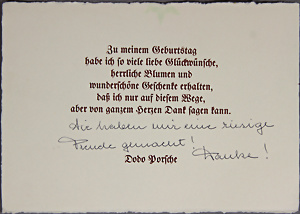 Zu meinem Geburtstag
habe ich so viele liebe Glückwünsche,
herrliche Blumen und
wunderschöne Geschenke erhalten,
daß ich nur auf diesem Wege,
aber von ganzem Herzen Dank sagen kann.
Sie haben mir eine riesige
Freude gemacht!
Danke!
Dodo Porsche